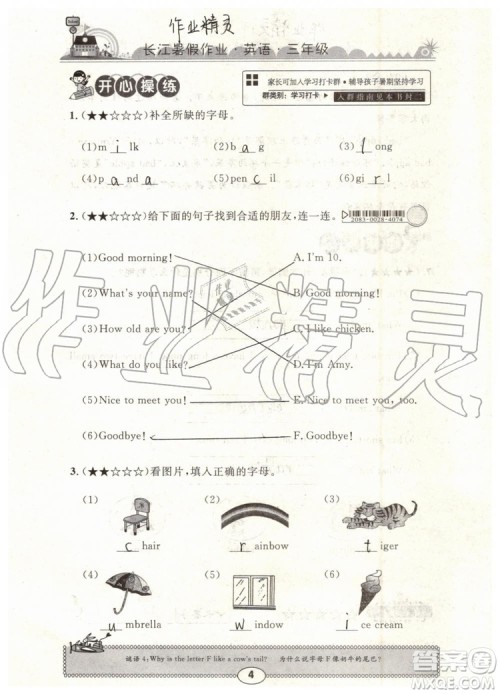 作业精灵
长江暑假作业·英语·三年级
开心操练
家长可加入学习打卡群·辅导孩子暑期坚持学习
群类别:学习打卡
入群指南见本书封
1.(★★☆☆☆)补全所缺的字母。
(1)m i lk (2)b a g (3) l ong
(4)p a nd a (5)pen c il (6)gi r l
2.(★★☆☆☆)给下面的句子找到合适的朋友,连一连。
2083-0028-4074
(1)Good morning! A. I'm 10.
(2)What's your name? B. Good morning!
(3)How old are you? C. I like chicken.
(4)What do you like? D. I'm Amy.
(5)Nice to meet you! E. Nice to meet you, too.
(6)Goodbye! F. Goodbye!
3.(★★☆☆☆)看图片,填入正确的字母。
(1) (2) (3)
c hair r ainbow t iger
(4) (5) (6)
u mbrella w indow i ce cream
谜语4:Why is the letter F like a cow's tail? 为什么说字母F像奶牛的尾巴?
4
作业精灵